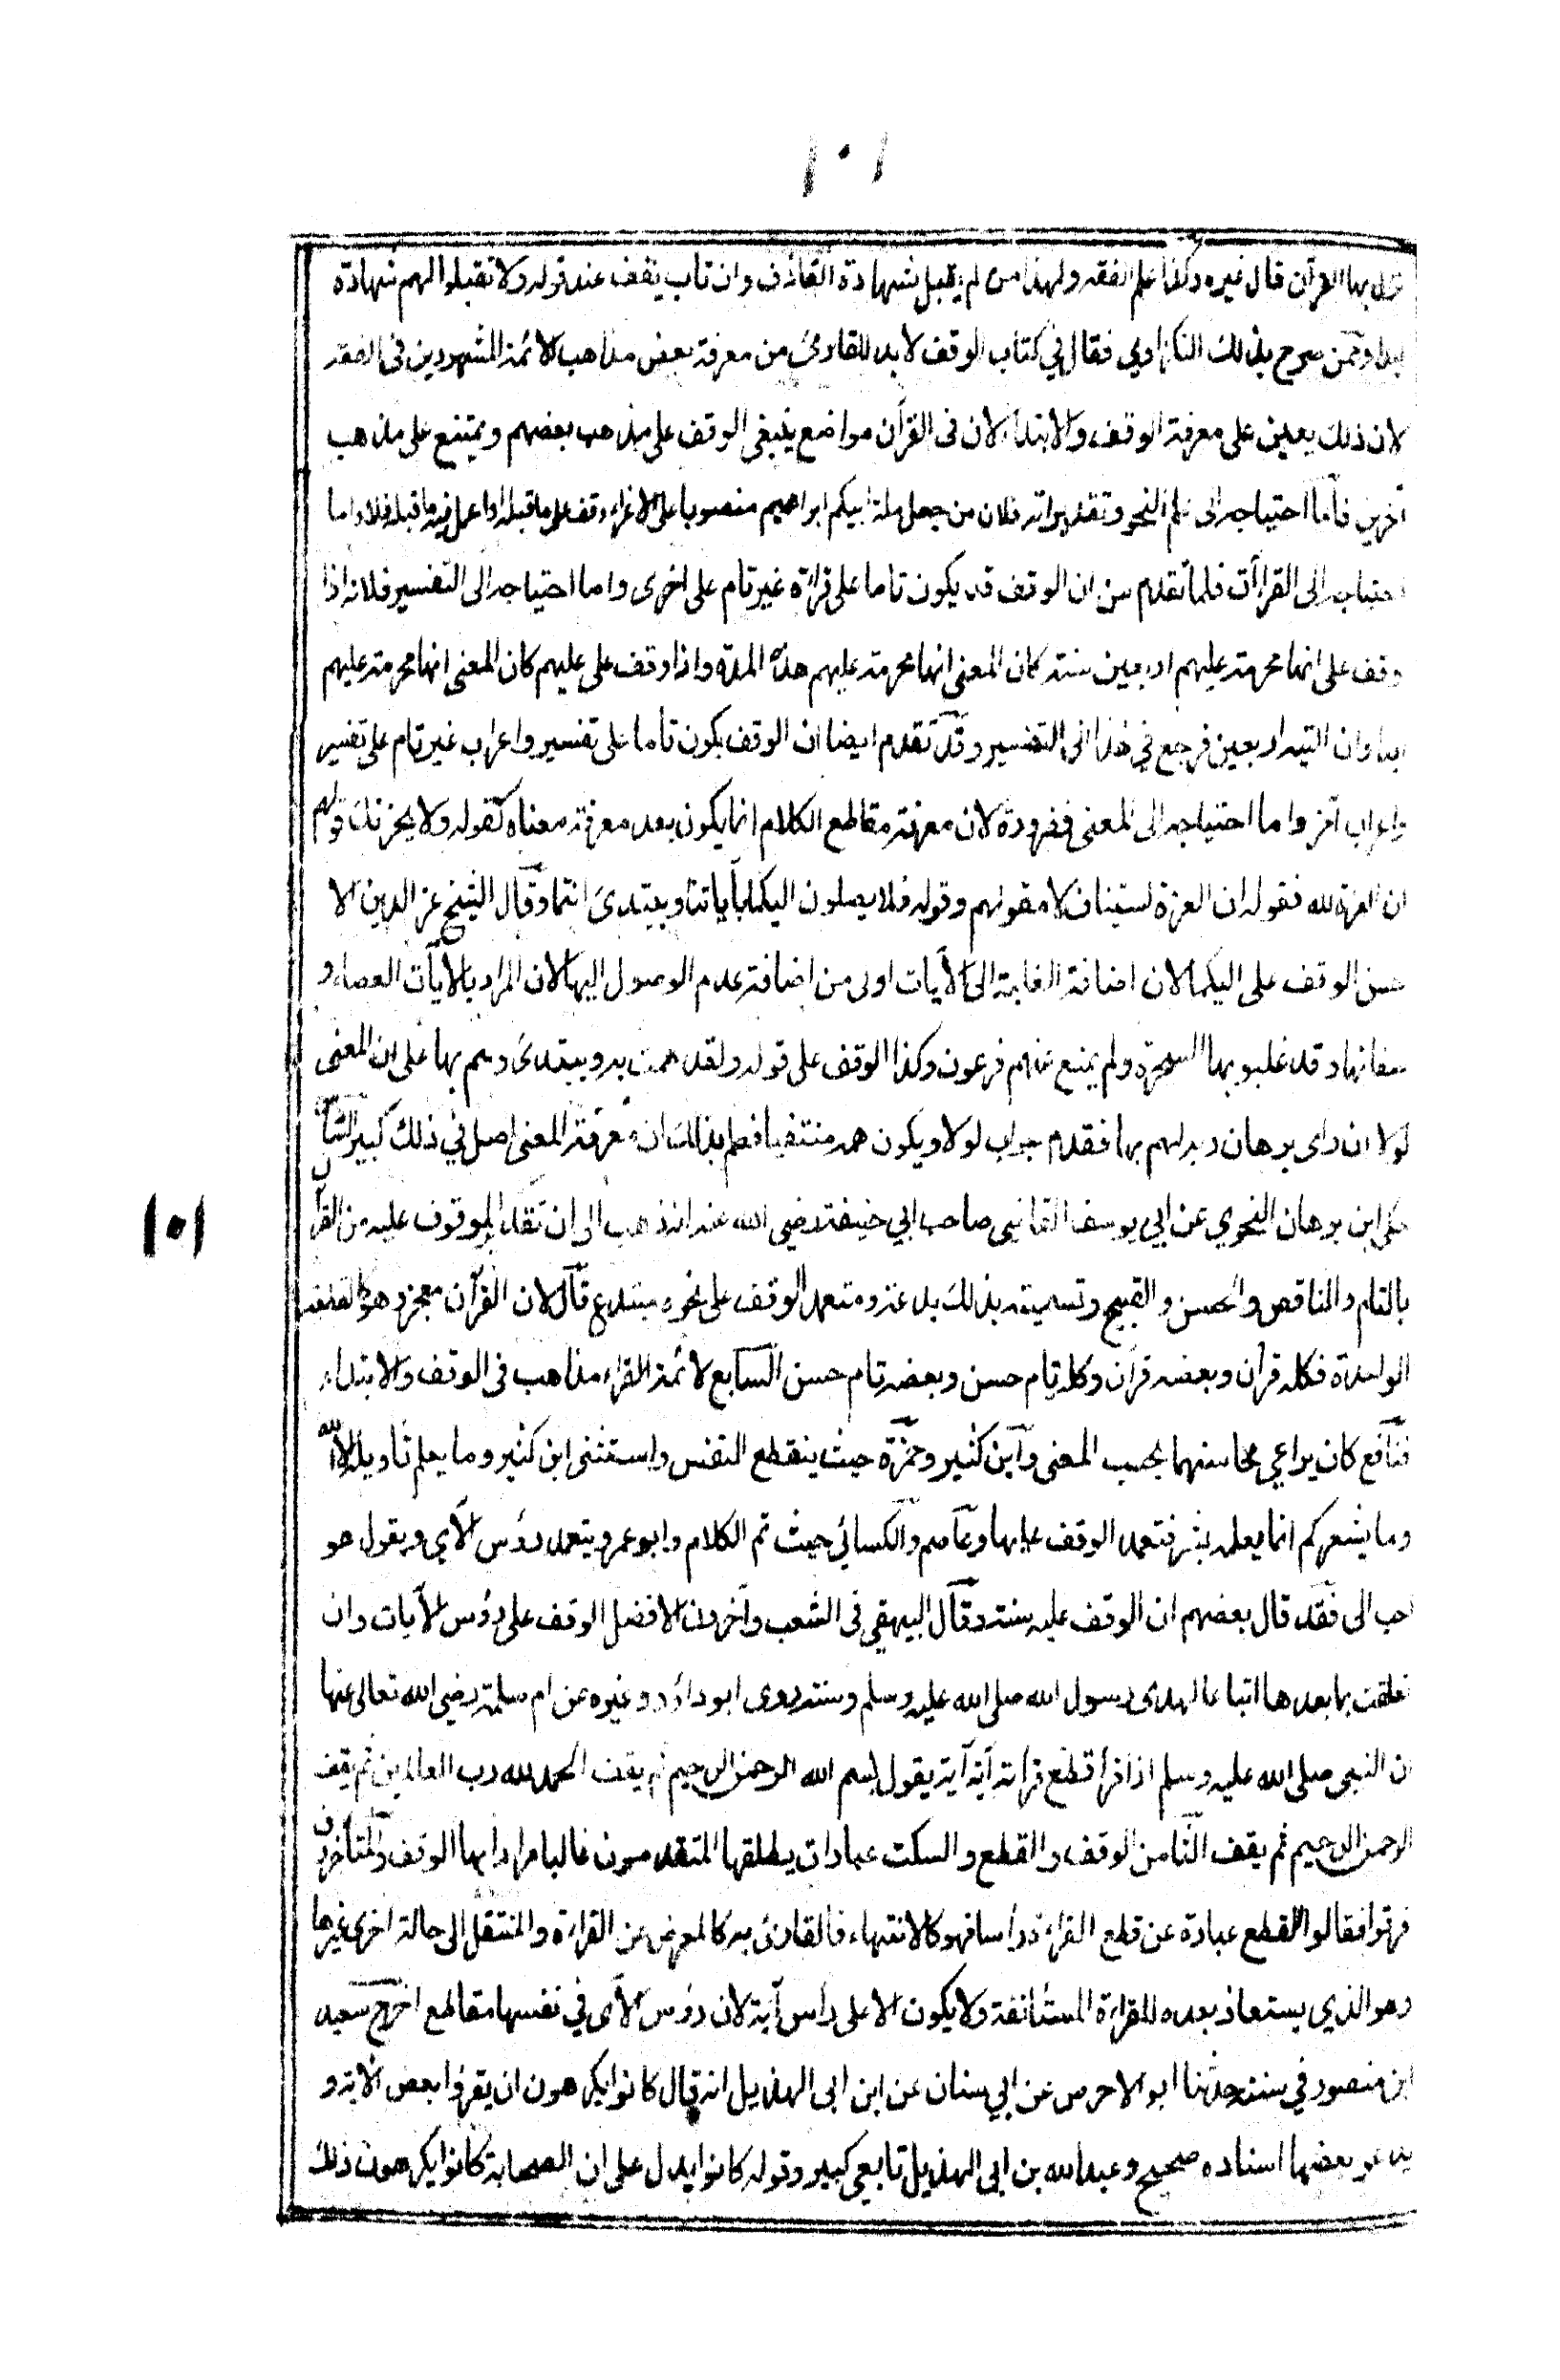 ١٠١
نزل بها القرآن قال غيره وكذا علم الفقه ولهذا من لم يقبل شهادة القاذف وان تاب يقف عند قوله ولا تقبلوا لهم شهادة
ابدا وممن صرح بذلك النكزاوي فقال في كتاب الوقف لا بد للقارئ من معرفة بعض مذاهب الائمة المشهورين فى الفقه
لان ذلك يعين على معرفة الوقف والابتداء لان فى القرآن مواضع ينبغي الوقف على مذهب بعضهم ويمتنع على مذهب
آخرين فاما احتياجه الى علم النحو وتقديراته فلان من جعل ملة ابيكم ابراهيم منصوبا على الاغراء وقف على ما قبله او اعمل فيه ما قبله فلا واما
احتياجه الى القراآت فلما تقدم من ان الوقف قد يكون تاما على قراءة غير تام على اخرى واما احتياجه الى التفسير فلانه اذا
وقف على انها محرمة عليهم اربعين سنة كان المعنى انها محرمة عليهم هذه المدة واذا وقف على عليهم كان المعنى انها محرمة عليهم
ابدا وان التيه اربعين فرجع في هذا الى التفسير وقد تقدم ايضا ان الوقف يكون تاما على تفسير واعراب غير تام على تفسير
واعراب آخر واما احتياجه الى المعنى فضرورة لان معرفة مقاطع الكلام انما يكون بعد معرفة معناه كقوله ولا يحزنك قولهم
ان العزة لله فقوله ان العزة استيناف لا مقولهم وقوله فلا يصلون اليكما بآياتنا ويبتدئ انتما وقال الشيخ عز الدين الا
حسن الوقف على اليكما لان اضافة الغلبة الى الآيات اولى من اضافة عدم الوصول اليها لان المراد بالآيات العصا و
صفاتها وقد غلبوا بها السحرة ولم يمنع عنهم فرعون وكذا الوقف على قوله ولقد همت به ويبتدئ وهم بها على ان المعنى
لولا ان راى برهان ربه لهم بها فقدم جواب لولا ويكون همه منتفيا فعلم بذلك ان معرفة المعنى اصل في ذلك كبير السادس
حكى ابن برهان النحوي عن ابي يوسف القاضي صاحب ابي حنيفة رضي الله عنه انه ذهب الى ان تقدير الموقوف عليه من القرآن
بالتام والناقص والحسن والقبيح وتسميته بذلك بدعة ومتعمد الوقف على نحوه مبتدع قال لان القرآن معجز وهو كالقطعة
الواحدة فكله قرآن وبعضه قرآن وكله تام حسن وبعضه تام حسن السابع لائمة القراء مذاهب فى الوقف والابتداء
فنافع كان يراعي محاسنهما بحسب المعنى وابن كثير وحمزة حيث ينقطع النفس واستثنى ابن كثير وما يعلم تاويله الا الله
وما يشعركم انما يعلمه بشر فتعمد الوقف عليها وعاصم والكسائي حيث تم الكلام وابو عمرو يتعمد رؤس الآي ويقول هو
احب الى فقد قال بعضهم ان الوقف عليه سنة وقال البيهقي فى الشعب وآخرون الافضل الوقف على رؤس الآيات وان
تعلقت بما بعدها اتباعا لهدى رسول الله صلى الله عليه وسلم وسنته روى ابو داؤد وغيره عن ام سلمة رضي الله تعالى عنها
ان النبى صلى الله عليه وسلم اذا قرأ قطع قراءته آية آية يقول بسم الله الرحمن الرحيم ثم يقف الحمد لله رب العالمين ثم يقف
الرحمن الرحيم ثم يقف الثامن الوقف والقطع والسكت عبارات يطلقها المتقدمون غالبا مرادا بها الوقف والمتأخرون
فرقوا فقالوا القطع عبارة عن قطع القراءة رأسا فهو كالانتهاء فالقارئ به كالمعرض عن القراءة والمنتقل الى حالة اخرى غيرها
وهو الذي يستعاذ بعده للقراءة المستأنفة ولا يكون الا على رأس آية لان رؤس الآى في نفسها مقاطع اخرج سعيد
ابن منصور في سننه حدثنا ابو الاحوص عن ابي سنان عن ابن ابى الهذيل انه قال كانوا يكرهون ان يقرؤا بعض الآية و
يدعو بعضها اسناده صحيح وعبد الله بن ابى الهذيل تابعي كبير وقوله كانوا يدل على ان الصحابة كانوا يكرهون ذلك
١٠١